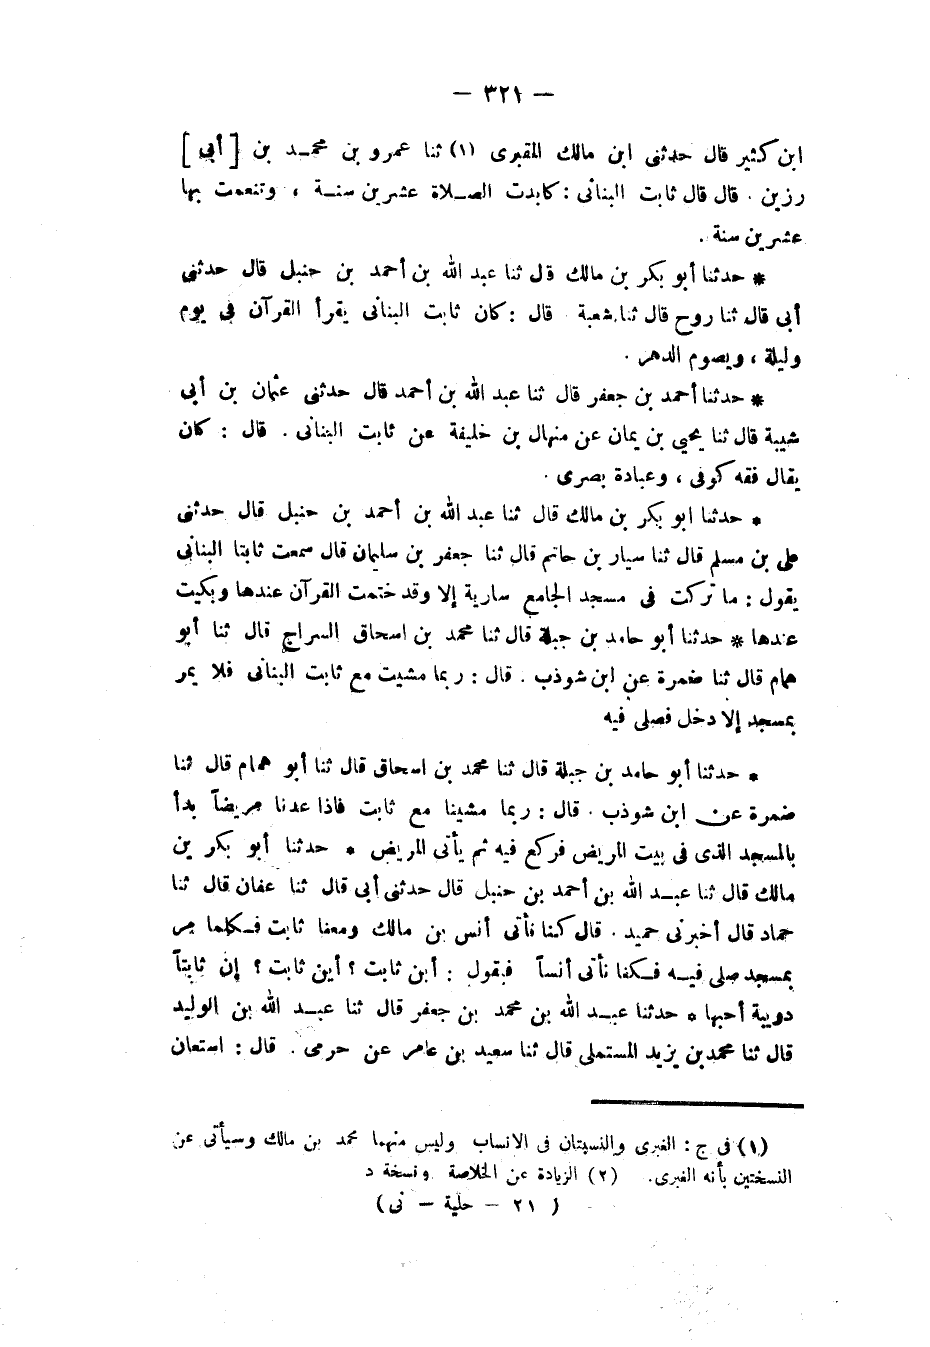 — ٣٢١ —
ابن كثير قال حدثنى ابن مالك المقبرى (١) ثنا عمرو بن محمد بن [أبى]
رزين . قال قال ثابت البنانى : كابدت الصلاة عشرين سنة ، وتنعمت بها
عشرين سنة .
* حدثنا أبو بكر بن مالك قال ثنا عبد الله بن أحمد بن حنبل قال حدثنى
أبى قال ثنا روح قال ثنا شعبة قال : كان ثابت البنانى يقرأ القرآن فى يوم
وليلة ، ويصوم الدهر .
* حدثنا أحمد بن جعفر قال ثنا عبد الله بن أحمد قال حدثنى عثمان بن أبى
شيبة قال ثنا يحيى بن يمان عن منهال بن خليفة عن ثابت البنانى . قال : كان
يقال فقه كوفى ، وعبادة بصرى .
* حدثنا ابو بكر بن مالك قال ثنا عبد الله بن أحمد بن حنبل قال حدثنى
على بن مسلم قال ثنا سيار بن حاتم قال ثنا جعفر بن سليمان قال سمعت ثابتا البنانى
يقول : ما تركت فى مسجد الجامع سارية إلا وقد ختمت القرآن عندها وبكيت
عندها * حدثنا أبو حامد بن جبلة قال ثنا محمد بن اسحاق السراج قال ثنا أبو
همام قال ثنا ضمرة عن ابن شوذب . قال : ربما مشيت مع ثابت البنانى فلا يمر
بمسجد إلا دخل فصلى فيه
* حدثنا أبو حامد بن جبلة قال ثنا محمد بن اسحاق قال ثنا أبو همام قال ثنا
ضمرة عن ابن شوذب . قال : ربما مشينا مع ثابت فاذا عدنا مريضاً بدأ
بالمسجد الذى فى بيت المريض فركع فيه ثم يأتى المريض * حدثنا أبو بكر بن
مالك قال ثنا عبد الله بن أحمد بن حنبل قال حدثنى أبى قال ثنا عفان قال ثنا
حماد قال أخبرنى حميد . قال كنا نأتى أنس بن مالك ومعنا ثابت فكلما مر
بمسجد صلى فيه فكنا نأتى أنساً فيقول : أين ثابت ؟ أين ثابت ؟ إن ثابتاً
دويبة أحبها * حدثنا عبد الله بن محمد بن جعفر قال ثنا عبد الله بن الوليد
قال ثنا محمد بن يزيد المستملى قال ثنا سعيد بن عامر عن حرمى . قال : استعان
(١) فى ج : الغبرى والنسبتان فى الانساب وليس منهما محمد بن مالك وسيأتى عن
النسختين بأنه الغبرى . (٢) الزيادة عن الخلاصة ونسخة د
( ٢١ — حلية — نى )